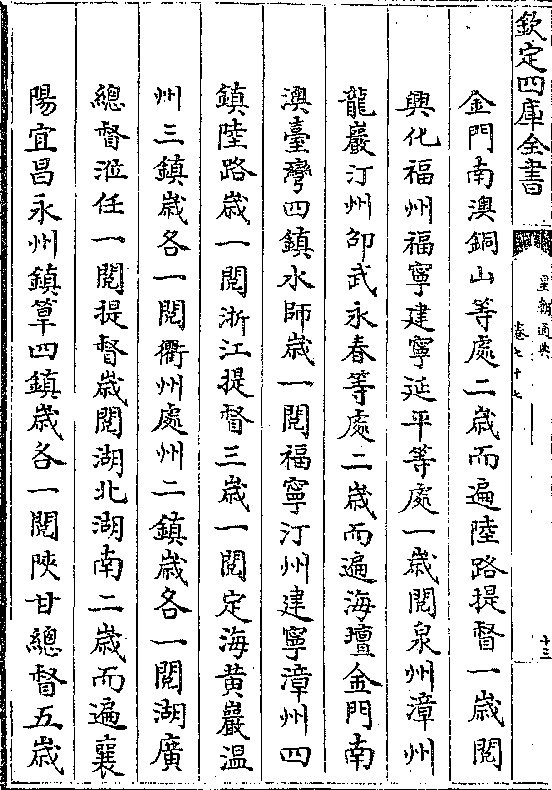 欽定四庫全書
皇朝通典
卷七十七
十三
金門南澳銅山等處二歳而遍陸路提督一歳閱
興化福州福寧建寧延平等處一歳閱泉州漳州
龍巖汀州邵武永春等處二歳而遍海壇金門南
澳臺灣四鎮水師歳一閱福寧汀州建寧漳州四
鎮陸路歳一閱浙江提督三歳一閱定海黃巖温
州三鎮歳各一閱衢州處州二鎮歳各一閱湖廣
總督涖任一閱提督歳閱湖北湖南二歳而遍襄
陽宜昌永州鎮筸四鎮歳各一閱陜甘總督五歳